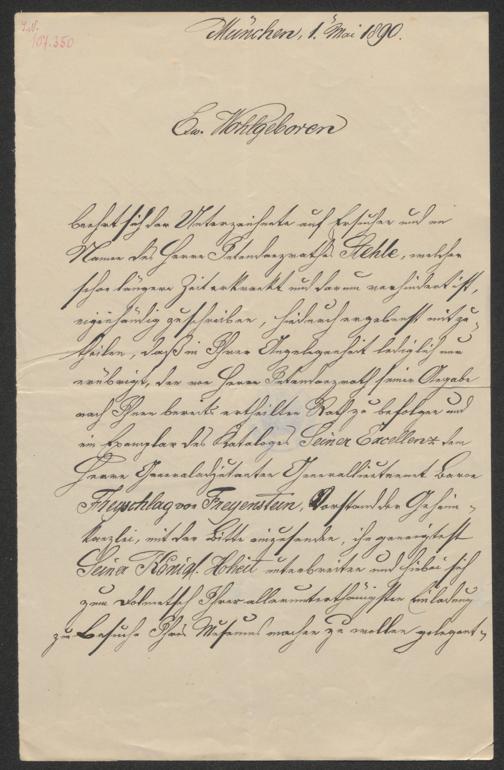 I.N.
107.350
München, 1. Mai 1890.
Ew. Wohlgeboren
beehrt sich der Unterzeichnete auf Ersuchen und im
Namen des Herrn Intendanzrathes Stehle, welcher
schon längere Zeit erkrankt und darum verhindert ist,
eigenhändig zu schreiben, hiedurch ergebenst mitzu-
theilen, daß in Ihrer Angelegenheit lediglich nur
erübrigt, den von Herrn Intendanzrath seiner Angabe
nach Ihnen bereits ertheilten Rath zu befolgen und
ein Exemplar des Kataloges Seiner Excellenz dem
Herrn Generaladjutanten Generallieutenant Baron
Freyschlag von Freyenstein, Vorstand der Geheim-
kanzlei, mit der Bitte einzusenden, ihn geneigtest
Seiner Königl. Hoheit unterbreiten und hiebei sich
zum Dolmetsch Ihrer allerunterthänigsten Einladung
zum Besuche Ihres Museums machen zu wollen gelegent-